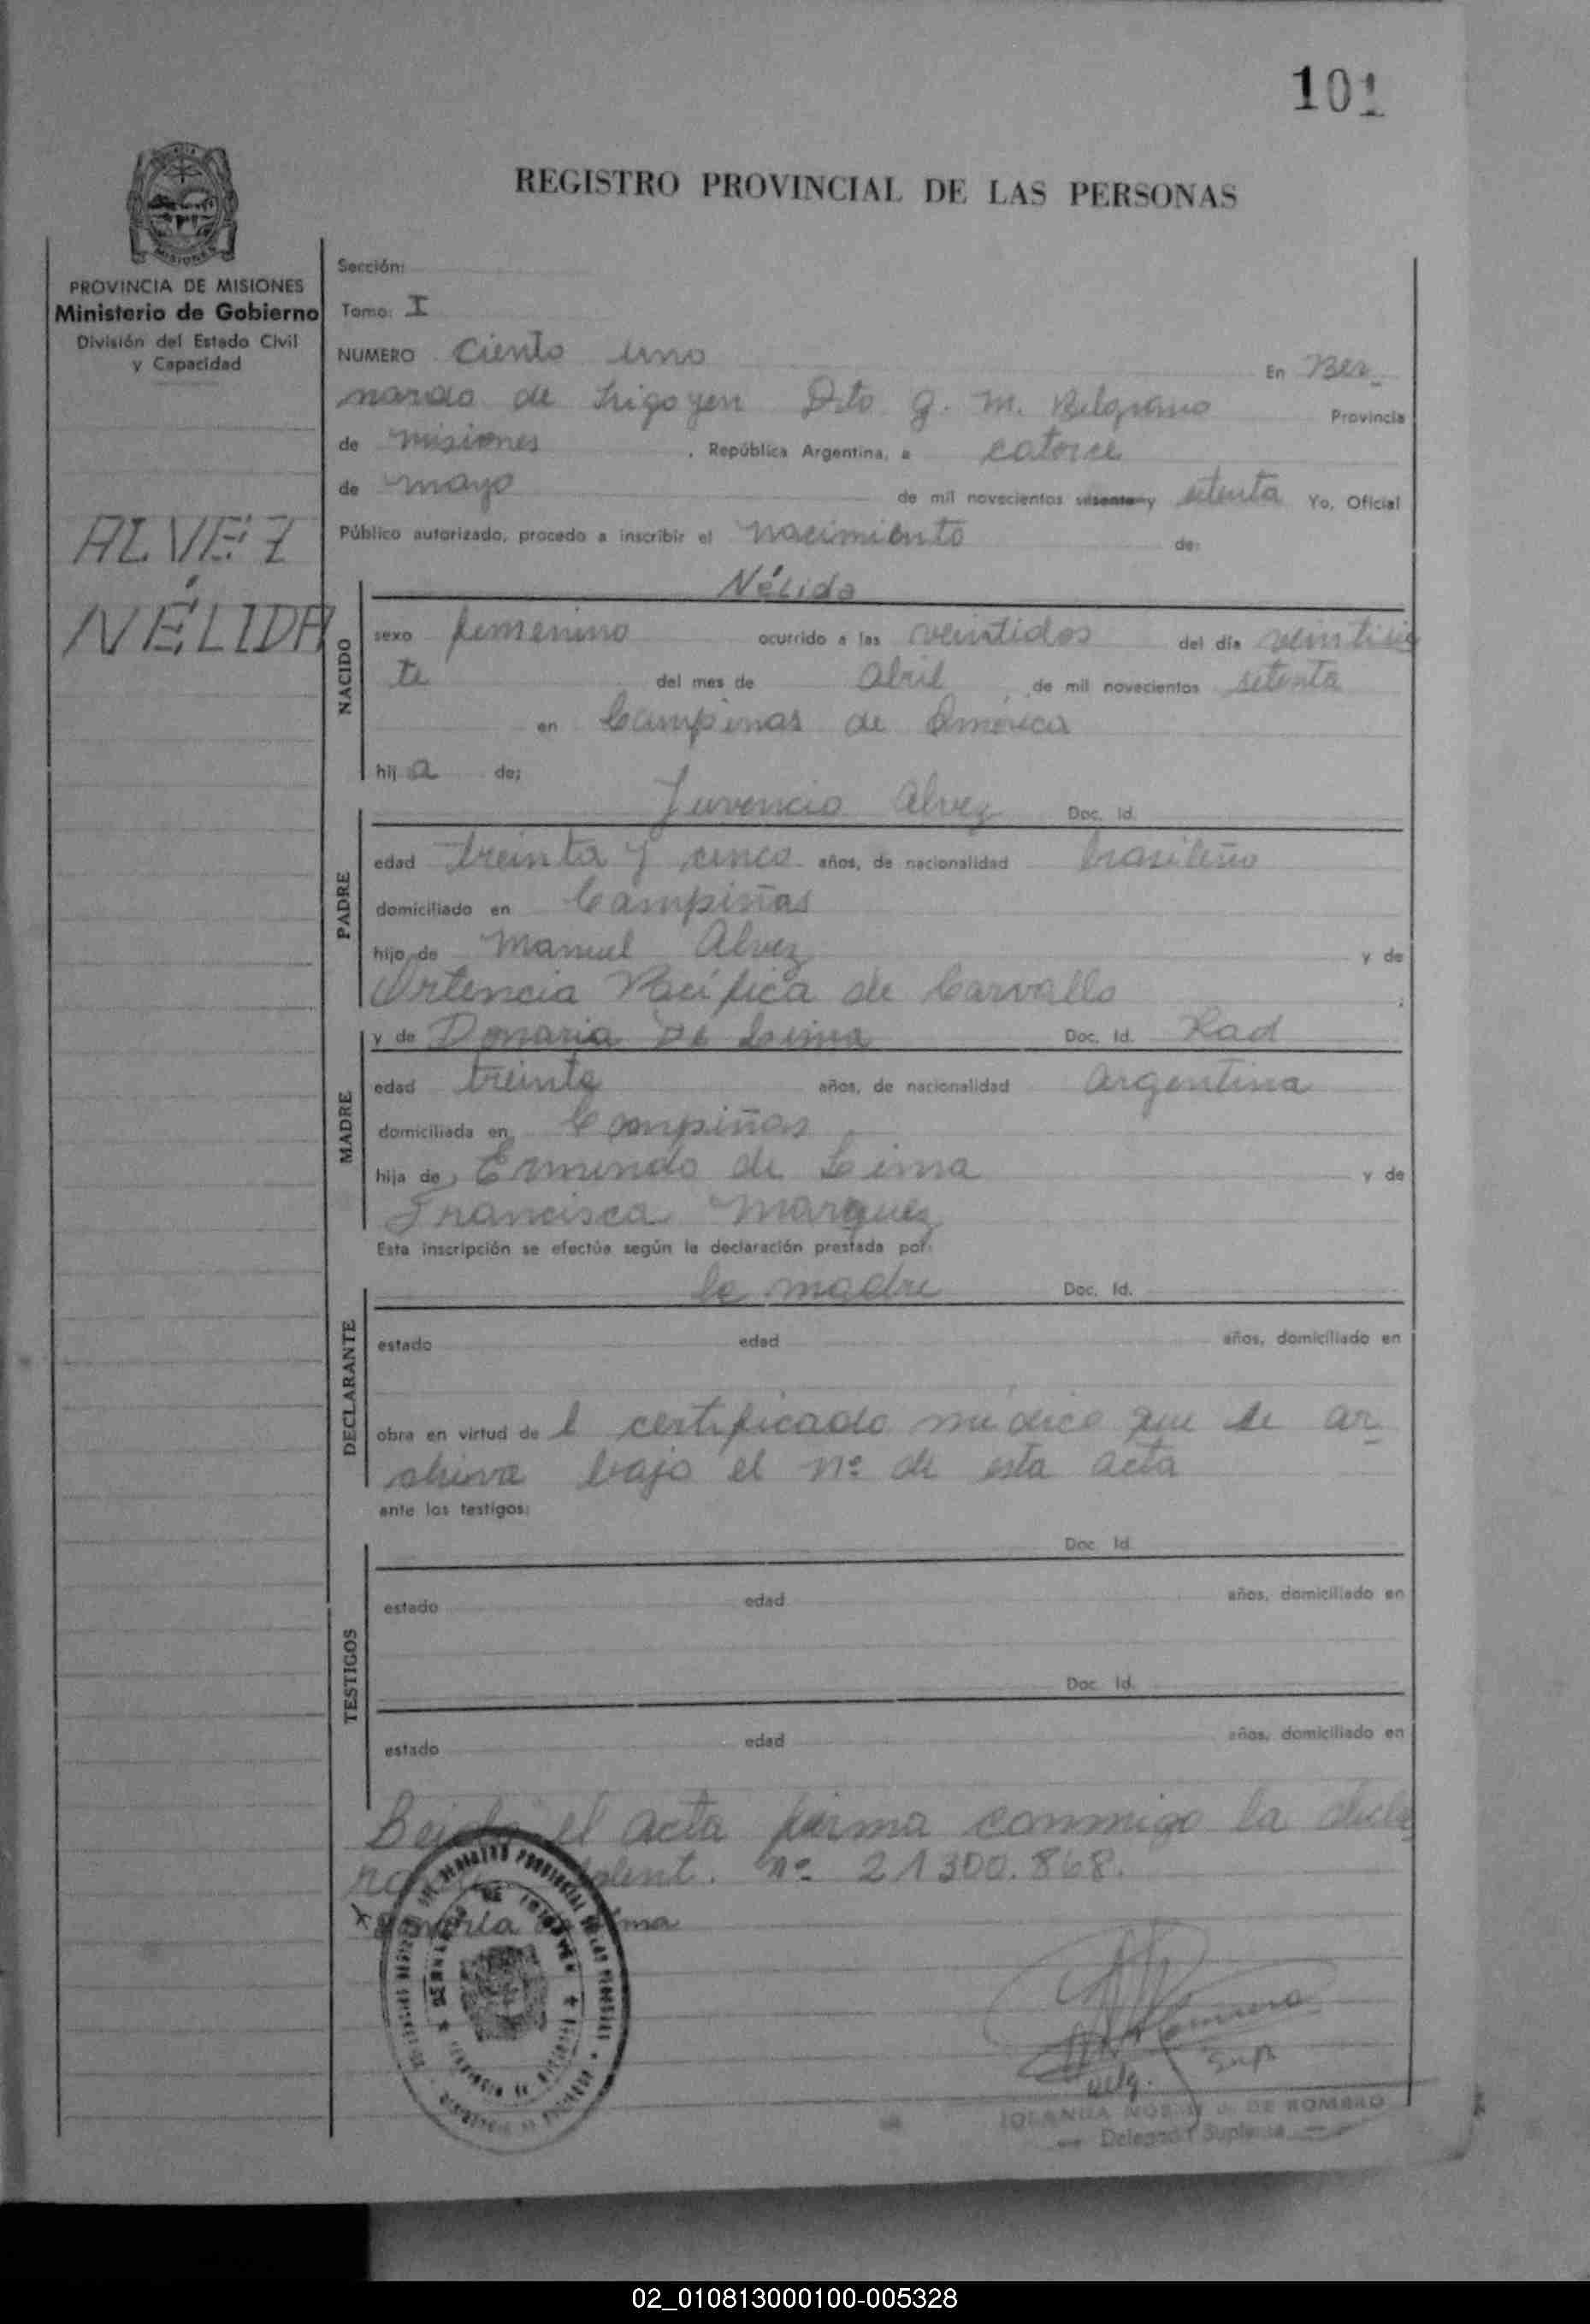 101
REGISTRO PROVINCIAL DE LAS PERSONAS
PROVINCIA DE MISIONES
Ministerio de Gobierno
División del Estado Civil
y Capacidad
ALVEZ
NÉLIDA
Sección:
Tomo: I
NUMERO Ciento uno En Ber_
nardo de Irigoyen Dto G. M. Belgrano Provincia
de misiones , República Argentina, a catorce
de mayo de mil novecientos sesenta y setenta Yo, Oficial
Público autorizado, procedo a inscribir el nacimiento de:
Nélida
NACIDO
sexo femenino ocurrido a las veintidos del día veintisie
te del mes de Abril de mil novecientos setenta
en Campinas de América
hij a de:
Juvencio Alvez Doc. Id.
PADRE
edad treinta y cinco años, de nacionalidad brasileño
domiciliado en Campiñas
hijo de Manuel Alvez y de
Ortencia Pacífica de Carvallo
y de Donaria De Lima Doc. Id. Rad
MADRE
edad treinta años, de nacionalidad Argentina
domiciliada en Campiñas
hija de Ermindo de Lima y de
Francisca Marquez
Esta inscripción se efectúa según la declaración prestada por:
la madre Doc. Id.
DECLARANTE
estado edad años, domiciliado en
obra en virtud de l certificado médico que se ar_
chiva bajo el nº de esta acta
ante los testigos:
Doc. Id.
TESTIGOS
estado edad años, domiciliado en
Doc. Id.
estado edad años, domiciliado en
el acta firma conmigo la decla
nº 21300.868.
Romero
Delg. Sup
DE ROMERO
Suplente
02_010813000100-005328